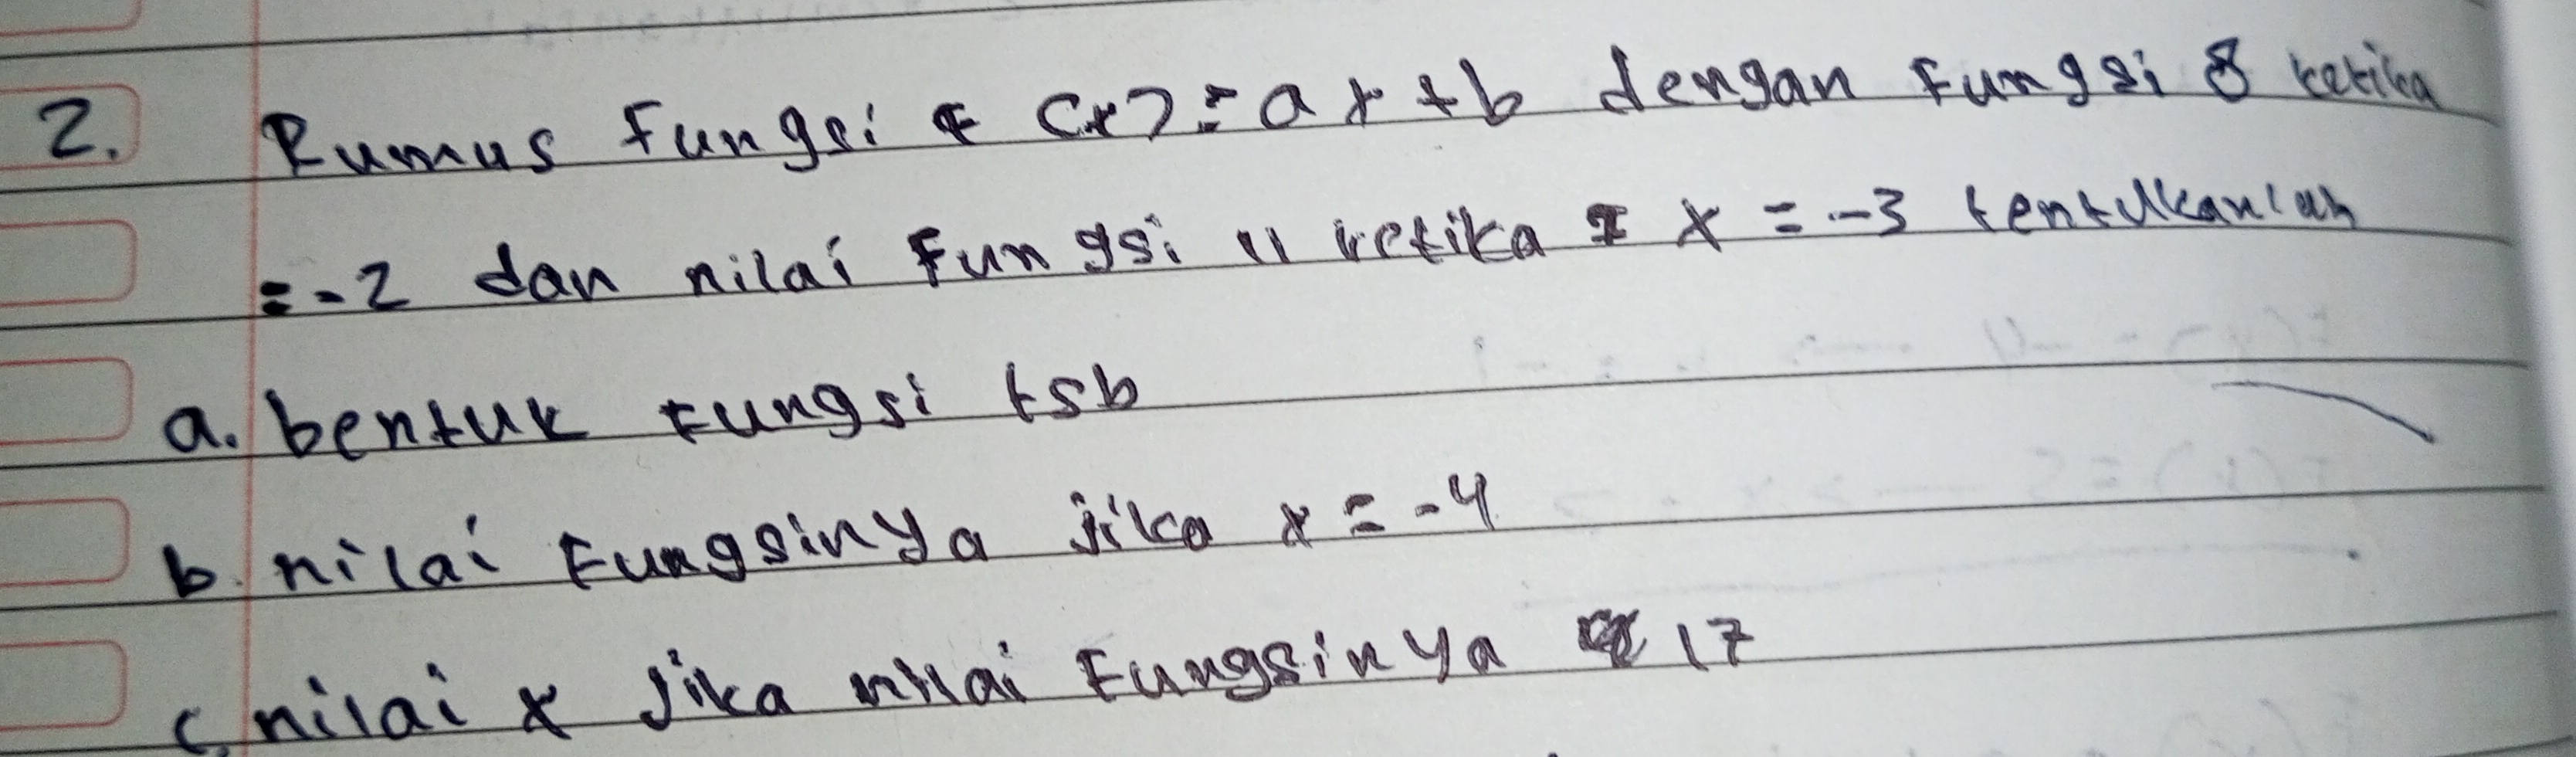 2. Rumus Fungsi F (x) = ax + b dengan Fungsi 8 ketika
= -2 dan nilai Fungsi 11 ketika x = -3 tentukanlah
a. bentuk Fungsi tsb
b. nilai Fungsinya jika x = -4
c. nilai x jika nilai Fungsinya 17